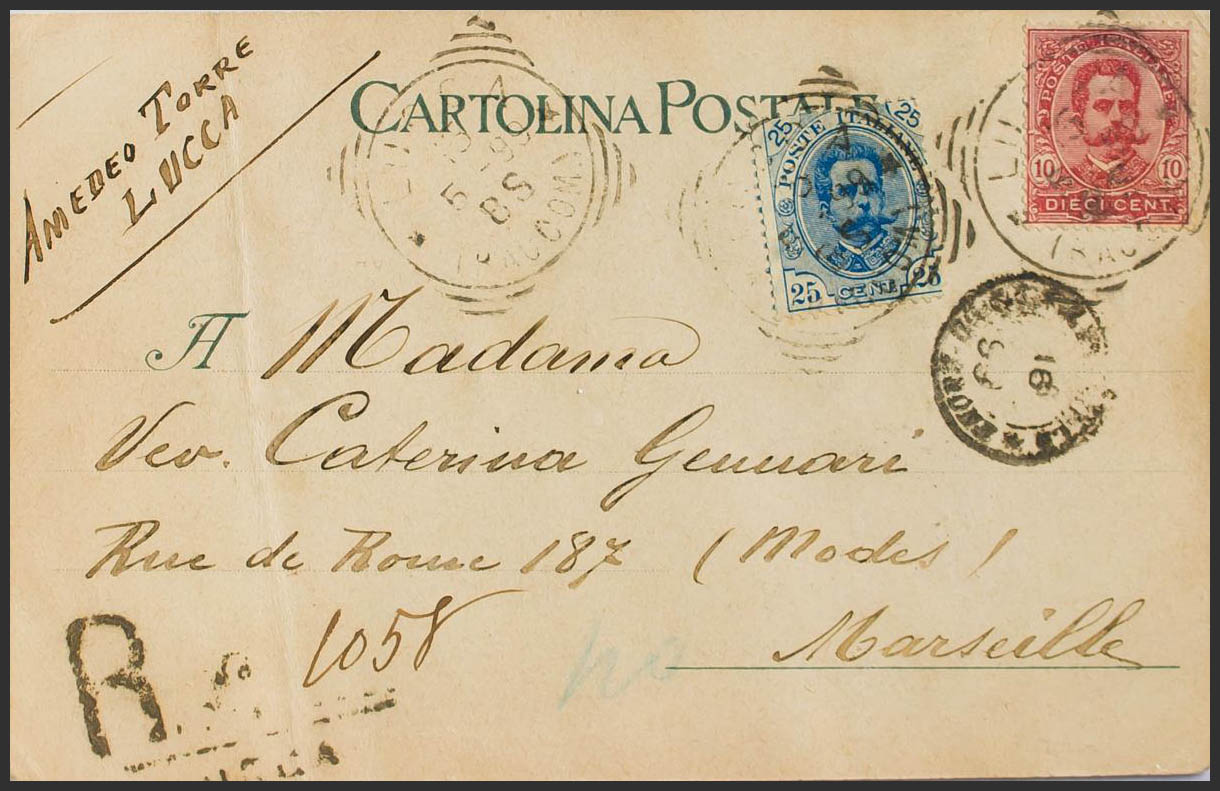 AMEDEO TORRE
LUCCA
CARTOLINA POSTALE
25 25
POSTE ITALIANE
25 - CENT. 25
POSTE ITALIANE
10 10
DIECI CENT.
5
8 S
(RACCOM)
A Madama
Ved. Caterina Gennari
Rue de Rome 187 (Modes)
1058
Marseille
R
99
18
no